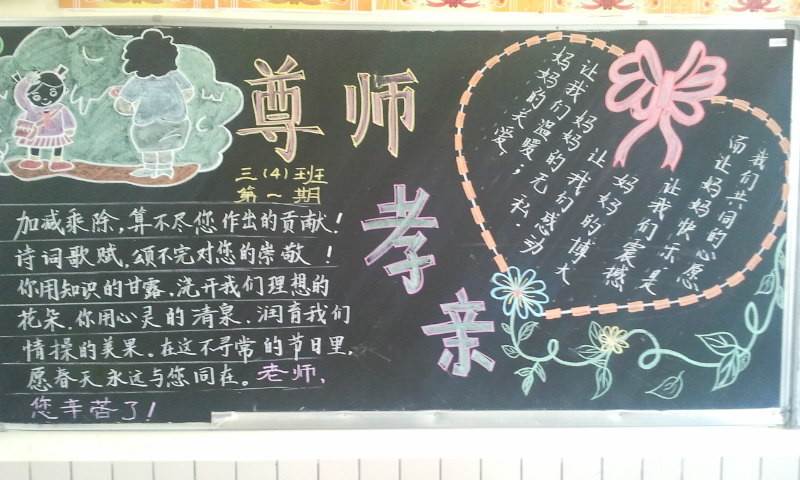 尊师
孝亲
三(4)班
第一期
加减乘除,算不尽您作出的贡献!
诗词歌赋,颂不完对您的崇敬!
你用知识的甘露、浇开我们理想的
花朵.你用心灵的清泉.润育我们
情操的美果。在这不寻常的节日里,
愿春天永远与您同在。老师,
您辛苦了!
妈妈的关爱,
让我们温暖;
妈妈的无私.
让我们感动
妈妈的博大
让我们震撼
让妈妈快乐,是
我们共同的心愿